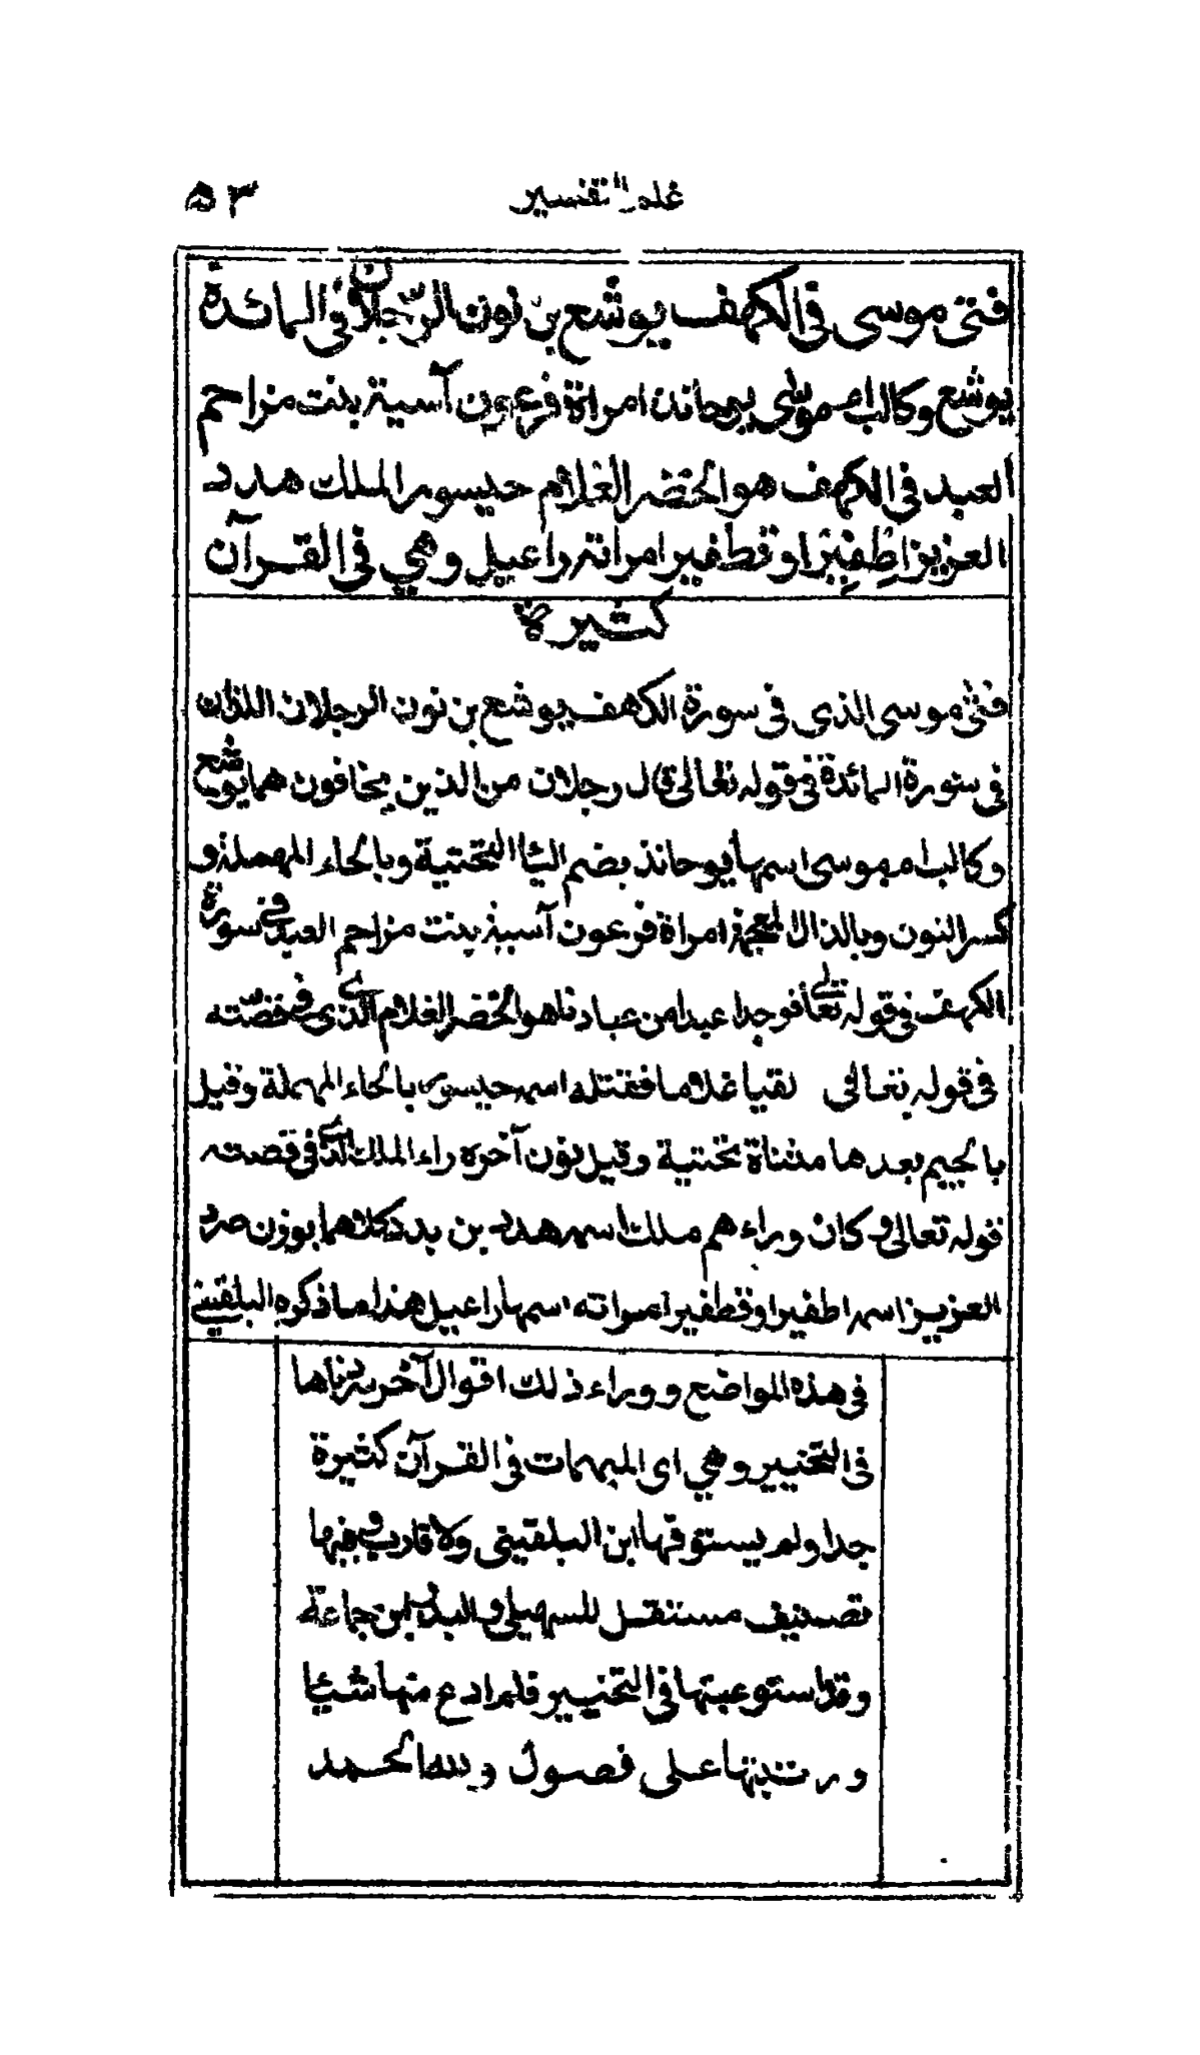 علم التفسير ٥٣
فتى موسى فى الكهف يوشع بن نون الرّجلان فى المائدة
يوشع وكالب ام موسى يوحاند امراة فرعون آسية بنت مزاحم
العبد فى الكهف هو الخضر الغلام حيسور الملك هدد
العزيز اطفير او قطفير امراته راعيل وهي فى القرآن
كثيرة
فتى موسى الذى فى سورة الكهف يوشع بن نون الرجلان اللذان
فى سورة المائدة فى قوله تعالى قال رجلان من الذين يخافون هما يوشع
وكالب ام موسى اسمها يوحانذ بضم اليا التحتية وبالحاء المهملة و
كسر النون وبالذال المعجمة امراة فرعون آسية بنت مزاحم العبد فى سورة
الكهف فى قوله تعالى فوجدا عبدا من عبادنا هو الخضر الغلام الذى فى قصّته
فى قوله تعالى لقيا غلاما فقتله اسمه حيسور بالحاء المهملة وقيل
بالجيم بعدها مثناة تحتية وقيل نون آخره راء الملك الذى فى قصته
قوله تعالى وكان وراءهم ملك اسمه هدد بن بدد كلاهما بوزن صرد
العزيز اسمه اطفير او قطفير امراته اسمها راعيل هذا ما ذكره البلقينى
فى هذه المواضع ووراء ذلك اقوال آخر بيناها
فى التحبير وهي اى المبهمات فى القرآن كثيرة
جدا ولم يستوفها ابن البلقينى ولا قارب وفيها
تصنيف مستقل للسهيلى والبدر ابن جماعة
وقد استوعبتها فى التحبير فلم ادع منها شيئا
ورتبتها على فصول ولله الحمد